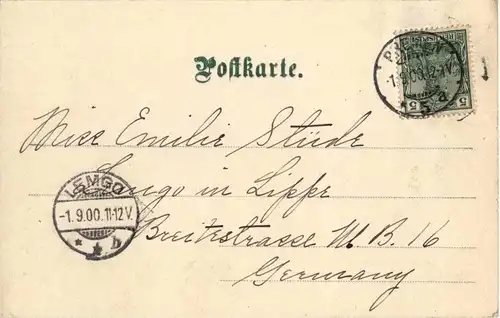 Postkarte.
1.9.00.
5 a.
5 5
Miss Emilie Stüde
Lemgo in Lippe
LEMGO
-1.9.00.11-12V.
* * b
Breitestrasse M. B. 16
Germany